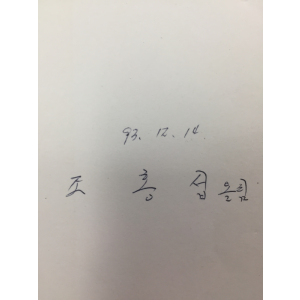 93. 12. 14.
조 흥 섭 올림